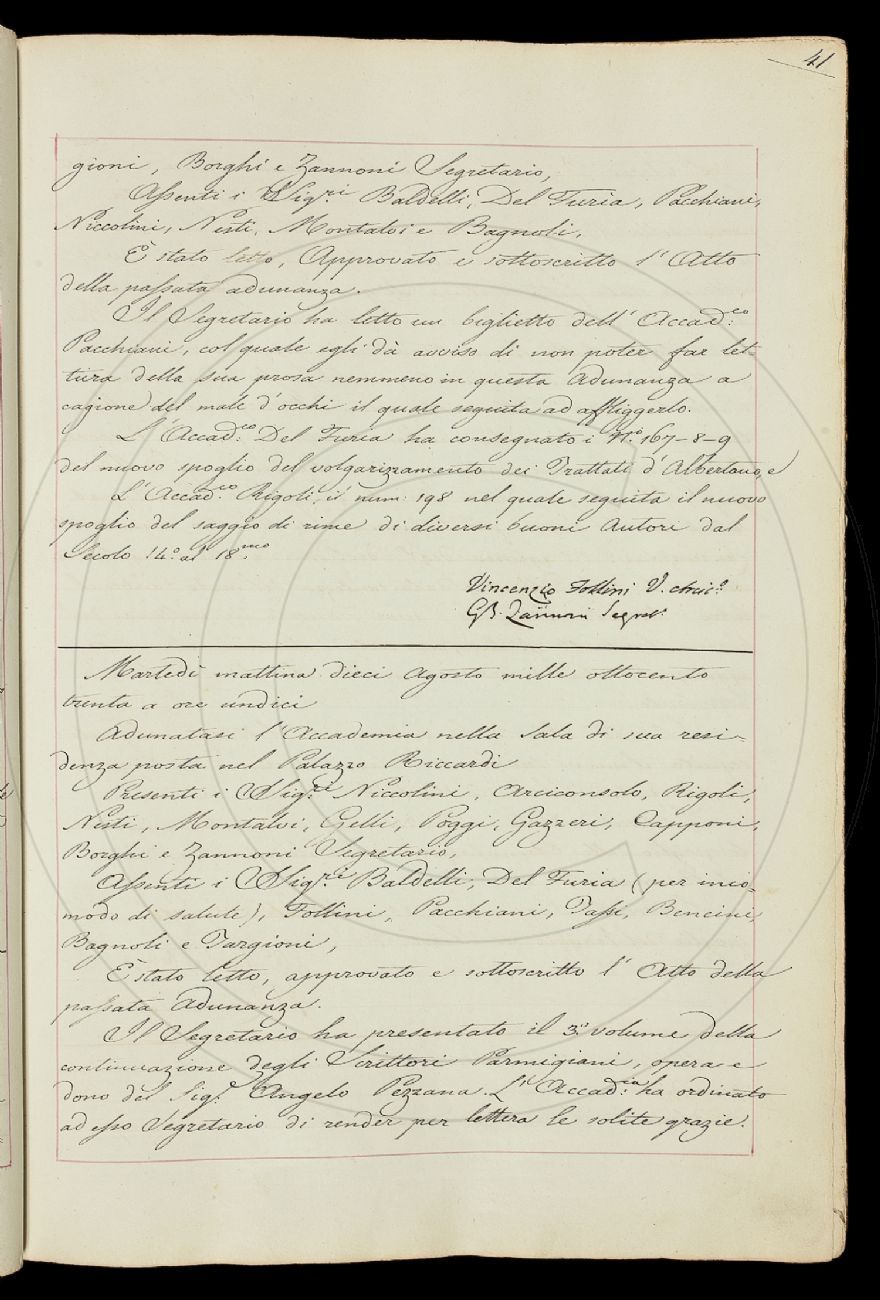 41
gioni, Borghi e Zannoni Segretario,
Assenti i Sig.ri Baldelli, Del Furia, Pacchiani,
Niccolini, Nesti, Montalvi e Bagnoli,
È stato letto, Approvato e sottoscritto l' Atto
della passata adunanza.
Il Segretario ha letto un biglietto dell' Accad.co
Pacchiani, col quale egli dà avviso di non poter far let-
tura della sua prosa nemmeno in questa adunanza a
cagione del male d'occhi il quale seguita ad affliggerlo.
L' Accad.co Del Furia ha consegnato i N.o 167-8-9
del nuovo spoglio del volgarizzamento dei Trattati d' Albertano, e
L' Accad.co Rigoli, il num: 198 nel quale seguita il nuovo
spoglio del saggio di rime di diversi buoni Autori dal
Secolo 14.o al 18.mo
Vincenzio Follini V. Arcic.o
GB. Zannoni Segret.
Martedì mattina dieci Agosto mille ottocento
trenta a ore undici
Adunatasi l' Accademia nella Sala di sua resi-
denza posta nel Palazzo Riccardi
Presenti i Sig.ri Niccolini, Arciconsolo, Rigoli,
Nesti, Montalvi, Gelli, Poggi, Gazzeri, Capponi,
Borghi e Zannoni Segretario,
Assenti i Sig.ri Baldelli, Del Furia (per inco-
modo di salute), Follini, Pacchiani, Tassi, Bencini,
Bagnoli e Targioni,
È stato letto, approvato e sottoscritto l' Atto della
passata Adunanza.
Il Segretario ha presentato il 3.o volume della
continuazione degli Scrittori Parmigiani, opera e
dono del Sig.e Angelo Pezzana. L' Accad.ia ha ordinato
ad esso Segretario di render per lettera le solite grazie.